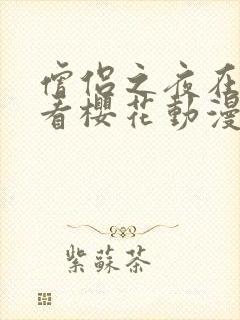 僧侶之夜在
看櫻花動漫
紫蘇茶